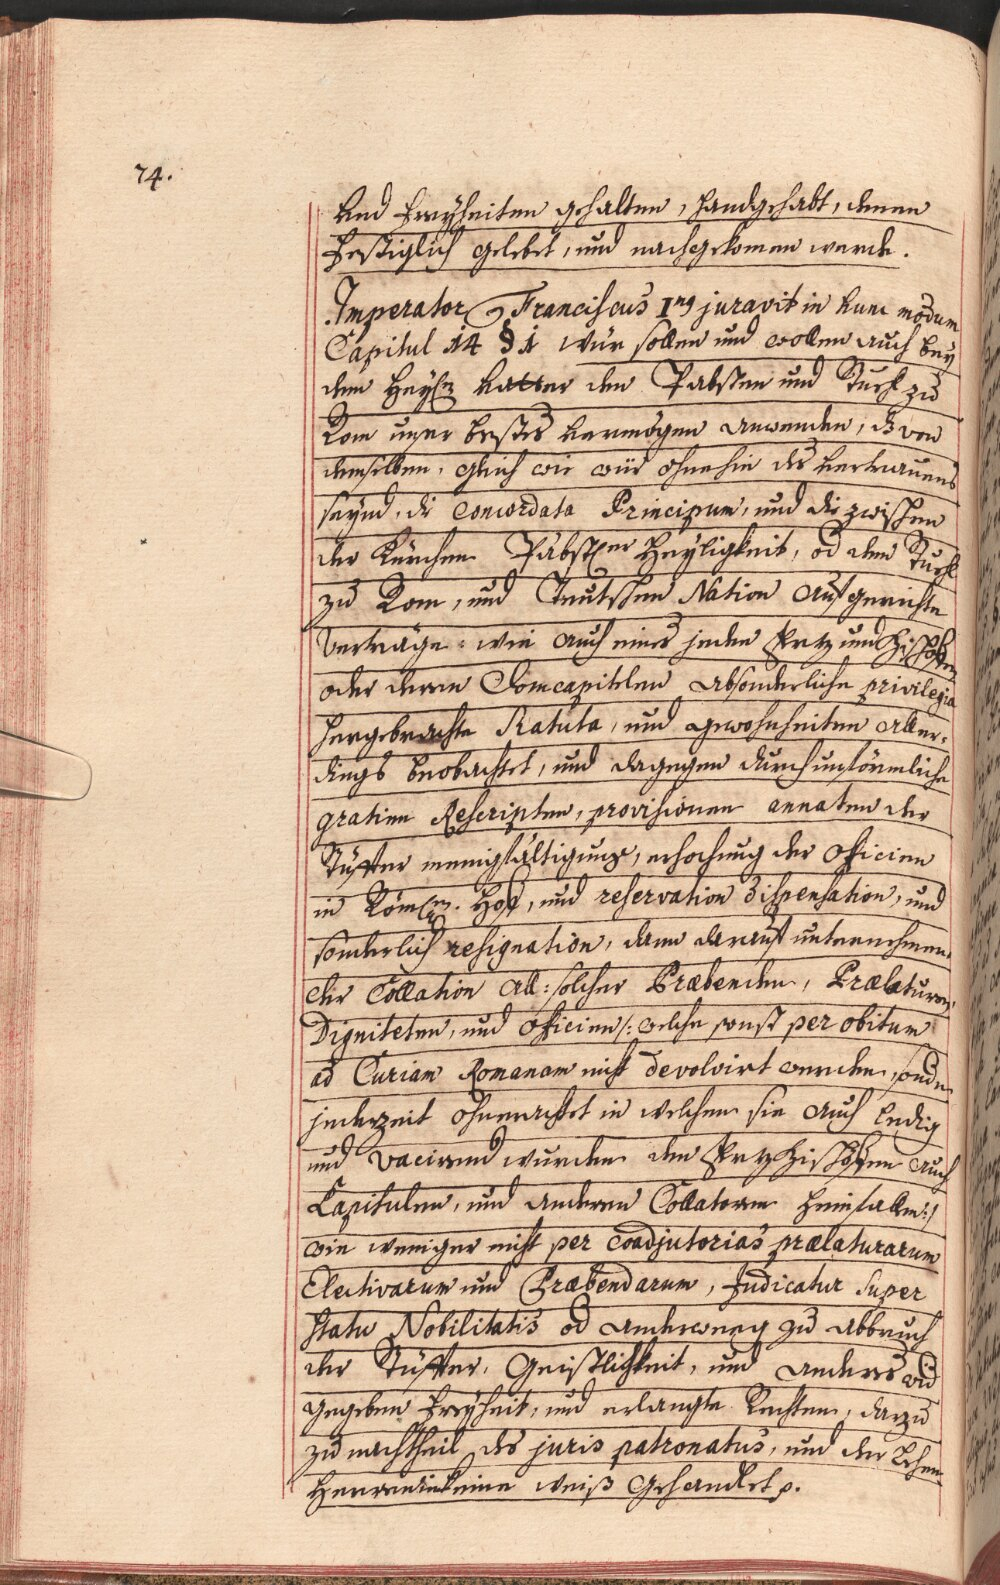 74.
und Freyheiten gehalten, handgehabt, denen
Festiglich gelebet, und nachgekomen werde.
Imperator Franciscus Imus juravit in hunc modum
Capitul 14 § 1 wür sollen und wollen auch bey
dem Heyl: Vatter den Pabsten und Stuhl zu
Rom unser bestes vermögen anwenden, dz von
demselben, gleich wie wür ohnehin des vertrauens
seynd, die Concordata Principum, und die zwischen
der Kürchen Päbstler Heyligkeit, od dem Stuhl
zu Rom, und Teutschen Nation aufgerichte
Verträge: wie auch eines jeden Ertz und Bischoffen
oder deren Domcapitelen absonderliche privilegia
hergebrachte Statuta, und gewohnheiten aller-
dings beobachtet, und dagegen durch unförmliche
gratien Rescripten, provisionen annaten der
Stüffter menigfältigung, erhochung der officien
in Röm: Hof, und reservation dispensation, und
sonderlich resignation, dann darauf unternehmen
der Collation all: solcher Præbenden, Prælaturen,
Digniteten, und officien /: welche sonst per obitum
ad Curiam Romanam nicht devolvirt werden, sonder
jederzeit ohnerachtet in welchem sie auch ledig
und vacirend wurden den Ertzbischöffen auch
Capitulen, und anderen Collatoren heimfallen :/
wie weniger nicht per coadjutorias prælaturarum
Electivarum und Præbendarum, Judicatur super
statu Nobilitatis od anderweeg zu abbruch
der Stüffter, Geistlichkeit, und anders wid
gegeben Freyheit, und erlangte Rechten, darzu
zu nachtheil des juris patronatus, und der Lehen-
Herren in keine weiß gehandlet p.